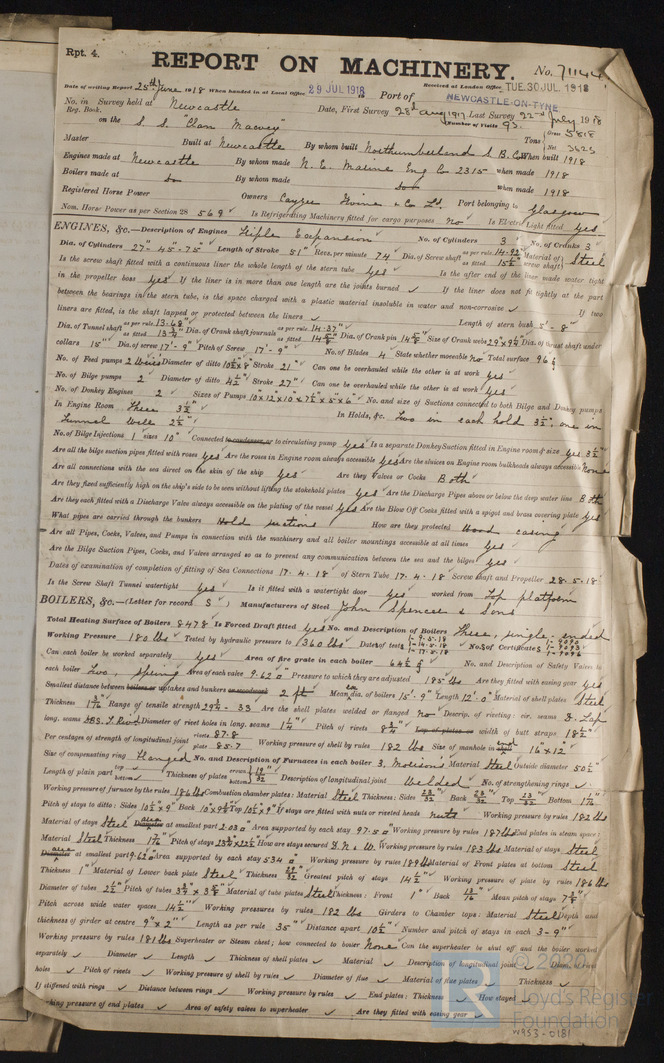 Rpt. 4.
REPORT ON MACHINERY.
No. 71144
Date of writing Report 25th June 1918 When handed in at Local Office 29 JUL 1918 Received at London Office TUE. 30 JUL. 1918
Port of NEWCASTLE-ON-TYNE
No. in Survey held at Newcastle Date, First Survey 28th Aug 1917 Last Survey 22nd July 1918
Reg. Book. Number of Visits 93
on the S. S. "Clan Macvey" Tons Gross 5818 Net 3623
Master Built at Newcastle By whom built Northumberland S B Co When built 1918
Engines made at Newcastle By whom made N. E. Marine Eng Co 2315 when made 1918
Boilers made at do By whom made do when made 1918
Registered Horse Power Owners Cayzer Irvine & Co Ld. Port belonging to Glasgow
Nom. Horse Power as per Section 28 569 Is Refrigerating Machinery fitted for cargo purposes No Is Electric Light fitted yes
ENGINES, &c.—Description of Engines Triple Expansion No. of Cylinders 3 No. of Cranks 3
Dia. of Cylinders 27"-45"-75" Length of Stroke 51" Revs. per minute 74 Dia. of Screw shaft as per rule 14.93 as fitted 15¼ Material of screw shaft Steel
Is the screw shaft fitted with a continuous liner the whole length of the stern tube yes Is the after end of the liner made water tight
in the propeller boss yes If the liner is in more than one length are the joints burned If the liner does not fit tightly at the part
between the bearings in the stern tube, is the space charged with a plastic material insoluble in water and non-corrosive If two
liners are fitted, is the shaft lapped or protected between the liners Length of stern bush 5'-8"
Dia. of Tunnel shaft as per rule 13.68 as fitted 13¾" Dia. of Crank shaft journals as per rule 14.37" as fitted 14⅝" Dia. of Crank pin 14⅝" Size of Crank webs 29 x 9¼ Dia. of thrust shaft under
collars 15" Dia. of screw 17'-9" Pitch of Screw 17'-9" No. of Blades 4 State whether moveable No Total surface 96
No. of Feed pumps 2 Diameter of ditto Stroke 21" Can one be overhauled while the other is at work yes
No. of Bilge pumps 2 Diameter of ditto 4½" Stroke 27" Can one be overhauled while the other is at work yes
No. of Donkey Engines 2 Sizes of Pumps No. and size of Suctions connected to both Bilge and Donkey pumps
In Engine Room Three 3½" In Holds, &c. Two in each hold 3½", one in
Tunnel Well 2½"
No. of Bilge Injections 1 sizes 10" Connected to condenser, or to circulating pump yes Is a separate Donkey Suction fitted in Engine room & size yes 3½"
Are all the bilge suction pipes fitted with roses yes Are the roses in Engine room always accessible yes Are the sluices on Engine room bulkheads always accessible None
Are all connections with the sea direct on the skin of the ship yes Are they Valves or Cocks Both
Are they fixed sufficiently high on the ship's side to be seen without lifting the stokehold plates yes Are the Discharge Pipes above or below the deep water line Both
Are they each fitted with a Discharge Valve always accessible on the plating of the vessel yes Are the Blow Off Cocks fitted with a spigot and brass covering plate yes
What pipes are carried through the bunkers Hold suctions How are they protected Wood casing
Are all Pipes, Cocks, Valves, and Pumps in connection with the machinery and all boiler mountings accessible at all times yes
Are the Bilge Suction Pipes, Cocks, and Valves arranged so as to prevent any communication between the sea and the bilges yes
Dates of examination of completion of fitting of Sea Connections 17.4.18 of Stern Tube 17.4.18 Screw shaft and Propeller 28.5.18
Is the Screw Shaft Tunnel watertight yes Is it fitted with a watertight door yes worked from Top platform
BOILERS, &c.—(Letter for record S) Manufacturers of Steel John Spencer & Sons
Total Heating Surface of Boilers 8478 Is Forced Draft fitted yes No. and Description of Boilers Three, single-ended
Working Pressure 180 lbs Tested by hydraulic pressure to 360 lbs Date of test 1-9.5.18 1-14.5.18 1-17.5.18 No. of Certificates 1-9090 1-9093 1-9096
Can each boiler be worked separately yes Area of fire grate in each boiler No. and Description of Safety Valves to
each boiler Two, Spring Area of each valve 9.62 Pressure to which they are adjusted 185 lbs Are they fitted with easing gear yes
Smallest distance between boilers or uptakes and bunkers or woodwork 2 ft Mean dia. of boilers 15'-9" Length 12'-0" Material of shell plates Steel
Thickness Range of tensile strength 29¼-33 Are the shell plates welded or flanged no Descrip. of riveting: cir. seams D. Lap
long. seams Diameter of rivet holes in long. seams 1¼ Pitch of rivets 8¾" Lap of plates or width of butt straps 18½"
Per centages of strength of longitudinal joint rivets 87.8 plate 85.7 Working pressure of shell by rules 182 lbs Size of manhole in 16" x 12"
Size of compensating ring Flanged No. and Description of Furnaces in each boiler 3, Morison's Material Steel Outside diameter 50½"
Length of plain part top bottom Thickness of plates crown bottom 19/32 Description of longitudinal joint Welded No. of strengthening rings
Working pressure of furnace by the rules 186 lbs Combustion chamber plates: Material Steel Thickness: Sides 23/32 Back 23/32 Top 23/32 Bottom
Pitch of stays to ditto: Sides 10½" x 9" Back Top 10½" x 9" If stays are fitted with nuts or riveted heads nuts Working pressure by rules 182 lbs
Material of stays Steel at smallest part 2.03 Area supported by each stay 97.5 Working pressure by rules 187 lbs End plates in steam space:
Material Steel Thickness Pitch of stays How are stays secured D. N. & W. Working pressure by rules 183 lbs Material of stays Steel
at smallest part 9.62 Area supported by each stay 534 Working pressure by rules 189 lbs Material of Front plates at bottom Steel
Thickness 1" Material of Lower back plate Steel Thickness Greatest pitch of stays 14½" Working pressure of plate by rules 186 lbs
Diameter of tubes 2½" Pitch of tubes Material of tube plates Steel Thickness: Front 1" Back 13/16" Mean pitch of stays
Pitch across wide water spaces 14½" Working pressures by rules 182 lbs Girders to Chamber tops: Material Steel Depth and
thickness of girder at centre 9" x 2" Length as per rule 35" Distance apart 10½" Number and pitch of stays in each 3-9"
Working pressure by rules 181 lbs Superheater or Steam chest; how connected to boiler None Can the superheater be shut off and the boiler worked
separately Diameter Length Thickness of shell plates Material Description of longitudinal joint Diam. of rivet
holes Pitch of rivets Working pressure of shell by rules Diameter of flue Material of flue plates Thickness
If stiffened with rings Distance between rings Working pressure by rules End plates: Thickness How stayed
Working pressure of end plates Area of safety valves to superheater Are they fitted with easing gear
© 2020
Lloyd's Register
Foundation
W953-0181